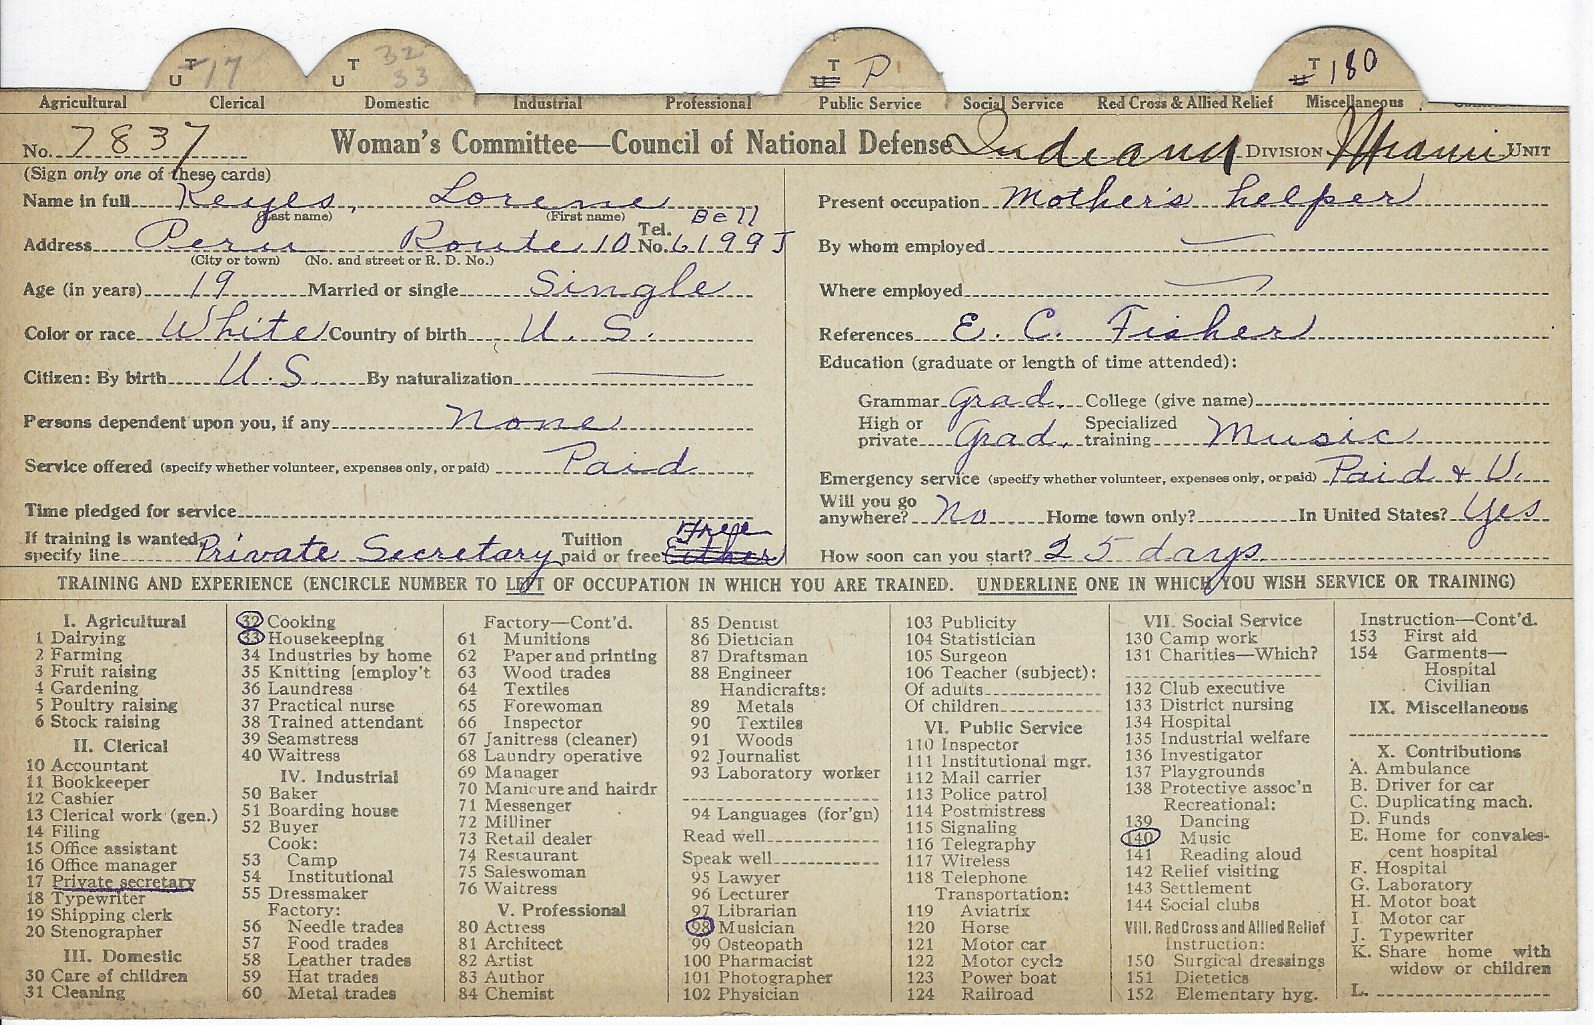 T U 17
T U 32 33
T U P
T U 180
Agricultural Clerical Domestic Industrial Professional Public Service Social Service Red Cross & Allied Relief Miscellaneous
No. 7837 Woman's Committee—Council of National Defense Indiana DIVISION Miami UNIT
(Sign only one of these cards)
Name in full Keyes, Lorene
(Last name) (First name)
Address Peru Route 10 Tel. No. Bell 6199J
(City or town) (No. and street or R. D. No.)
Age (in years) 19 Married or single Single
Color or race White Country of birth U. S.
Citizen: By birth U.S. By naturalization
Persons dependent upon you, if any none
Service offered (specify whether volunteer, expenses only, or paid) Paid
Time pledged for service
If training is wanted, specify line Private Secretary Tuition paid or free Free Either
Present occupation Mother's helper
By whom employed
Where employed
References E. C. Fisher
Education (graduate or length of time attended):
Grammar Grad. College (give name)
High or private Grad. Specialized training Music
Emergency service (specify whether volunteer, expenses only, or paid) Paid & V.
Will you go anywhere? No Home town only? In United States? Yes
How soon can you start? 25 days
TRAINING AND EXPERIENCE (ENCIRCLE NUMBER TO LEFT OF OCCUPATION IN WHICH YOU ARE TRAINED. UNDERLINE ONE IN WHICH YOU WISH SERVICE OR TRAINING)
I. Agricultural
1 Dairying
2 Farming
3 Fruit raising
4 Gardening
5 Poultry raising
6 Stock raising
II. Clerical
10 Accountant
11 Bookkeeper
12 Cashier
13 Clerical work (gen.)
14 Filing
15 Office assistant
16 Office manager
17 Private secretary
18 Typewriter
19 Shipping clerk
20 Stenographer
III. Domestic
30 Care of children
31 Cleaning
32 Cooking
33 Housekeeping
34 Industries by home
35 Knitting [employ't
36 Laundress
37 Practical nurse
38 Trained attendant
39 Seamstress
40 Waitress
IV. Industrial
50 Baker
51 Boarding house
52 Buyer
Cook:
53 Camp
54 Institutional
55 Dressmaker
Factory:
56 Needle trades
57 Food trades
58 Leather trades
59 Hat trades
60 Metal trades
Factory—Cont'd.
61 Munitions
62 Paper and printing
63 Wood trades
64 Textiles
65 Forewoman
66 Inspector
67 Janitress (cleaner)
68 Laundry operative
69 Manager
70 Manicure and hairdr
71 Messenger
72 Milliner
73 Retail dealer
74 Restaurant
75 Saleswoman
76 Waitress
V. Professional
80 Actress
81 Architect
82 Artist
83 Author
84 Chemist
85 Dentist
86 Dietician
87 Draftsman
88 Engineer
Handicrafts:
89 Metals
90 Textiles
91 Woods
92 Journalist
93 Laboratory worker
94 Languages (for'gn)
Read well
Speak well
95 Lawyer
96 Lecturer
97 Librarian
98 Musician
99 Osteopath
100 Pharmacist
101 Photographer
102 Physician
103 Publicity
104 Statistician
105 Surgeon
106 Teacher (subject):
Of adults
Of children
VI. Public Service
110 Inspector
111 Institutional mgr.
112 Mail carrier
113 Police patrol
114 Postmistress
115 Signaling
116 Telegraphy
117 Wireless
118 Telephone
Transportation:
119 Aviatrix
120 Horse
121 Motor car
122 Motor cycle
123 Power boat
124 Railroad
VII. Social Service
130 Camp work
131 Charities—Which?
132 Club executive
133 District nursing
134 Hospital
135 Industrial welfare
136 Investigator
137 Playgrounds
138 Protective assoc'n
Recreational:
139 Dancing
140 Music
141 Reading aloud
142 Relief visiting
143 Settlement
144 Social clubs
VIII. Red Cross and Allied Relief
Instruction:
150 Surgical dressings
151 Dietetics
152 Elementary hyg.
Instruction—Cont'd.
153 First aid
154 Garments—
Hospital
Civilian
IX. Miscellaneous
X. Contributions
A. Ambulance
B. Driver for car
C. Duplicating mach.
D. Funds
E. Home for convales-
cent hospital
F. Hospital
G. Laboratory
H. Motor boat
I. Motor car
J. Typewriter
K. Share home with
widow or children
L.